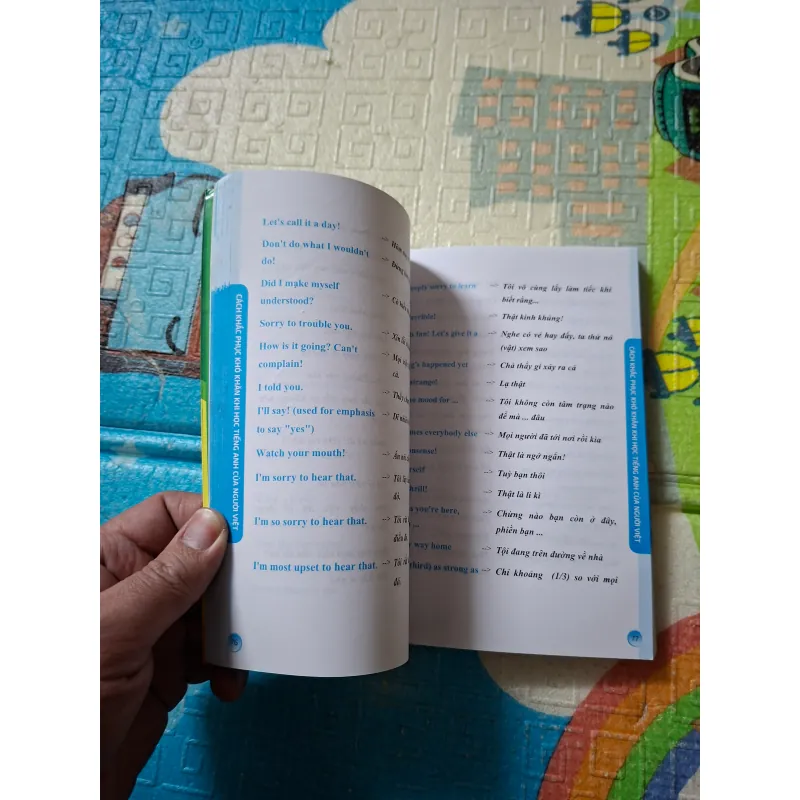 CÁCH KHẮC PHỤC KHÓ KHĂN KHI HỌC TIẾNG ANH CỦA NGƯỜI VIỆT
Let's call it a day!
Don't do what I wouldn't --> Đừng
do!
Did I make myself
understood?
Sorry to trouble you. --> Xin
How is it going? Can't --> Mọi
complain! cả.
I told you. -->
I'll say! (used for emphasis -->
to say "yes")
Watch your mouth! -->
I'm sorry to hear that. --> Tôi
đó.
I'm so sorry to hear that. --> Tôi
I'm most upset to hear that. --> Tôi
đó.
sorry to learn --> Tôi vô cùng lấy làm tiếc khi
biết rằng...
--> Thật kinh khủng!
fun! Let's give it a --> Nghe có vẻ hay đấy, ta thử nó
(vật) xem sao
happened yet --> Chả thấy gì xảy ra cả
--> Lạ thật
mood for ... --> Tôi không còn tâm trạng nào
để mà ... đâu
everybody else --> Mọi người đã tới nơi rồi kia
--> Thật là ngớ ngẩn!
--> Tuỳ bạn thôi
--> Thật là li kì
you're here, --> Chừng nào bạn còn ở đây,
... phiền bạn ...
way home --> Tôi đang trên đường về nhà
as strong as --> Chỉ khoảng (1/3) so với mọi
CÁCH KHẮC PHỤC KHÓ KHĂN KHI HỌC TIẾNG ANH CỦA NGƯỜI VIỆT
77